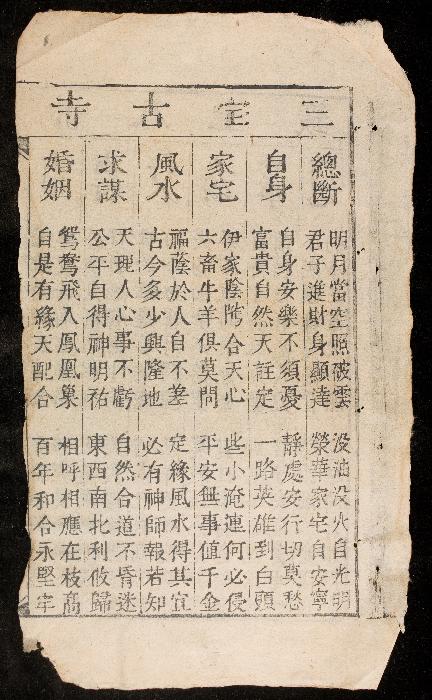 三宝古寺
總斷
明月當空照破雲 没油没火自光明
君子進財身顯達 榮華家宅自安寧
自身
自身安樂不須憂 靜處安行切莫愁
富貴自然天註定 一路英雄到白頭
家宅
伊家陰隲合天心 些小淹連何必侵
六畜牛羊俱莫問 平安無事值千金
風水
福蔭於人自不差 定緣風水得其宜
古今多少興隆地 必有神師報若知
求謀
天理人心事不虧 自然合道不昏迷
公平自得神明祐 東西南北利攸歸
婚姻
鴛鴦飛入鳳凰巢 相呼相應在枝高
自是有緣天配合 百年和合永堅牢